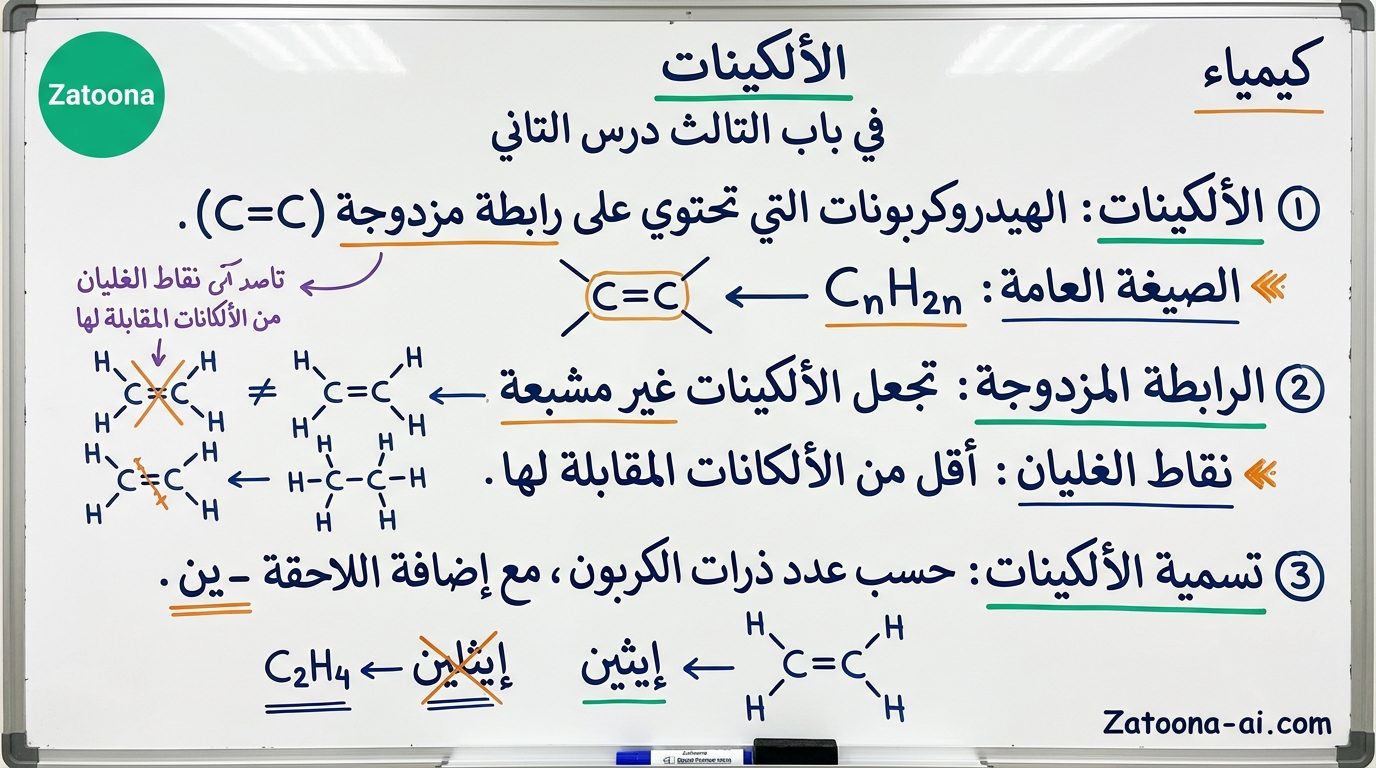 كيمياء
الألكينات
Zatoona
في باب التالث درس التاني
① الألكينات: الهيدروكربونات التي تحتوي على رابطة مزدوجة (C=C).
الصيغة العامة: CₙH₂ₙ ← C=C
نقاط الغليان
من الألكانات المقابلة لها
② الرابطة المزدوجة: تجعل الألكينات غير مشبعة ←
H H C=C H H ≠ H H C=C H H
نقاط الغليان: أقل من الألكانات المقابلة لها.
H H H-C-C-H H H ← H H C=C H H
③ تسمية الألكينات: حسب عدد ذرات الكربون، مع إضافة اللاحقة -ين.
H H C=C H H ← إيثين
إيثلين ← C₂H₄
Zatoona-ai.com